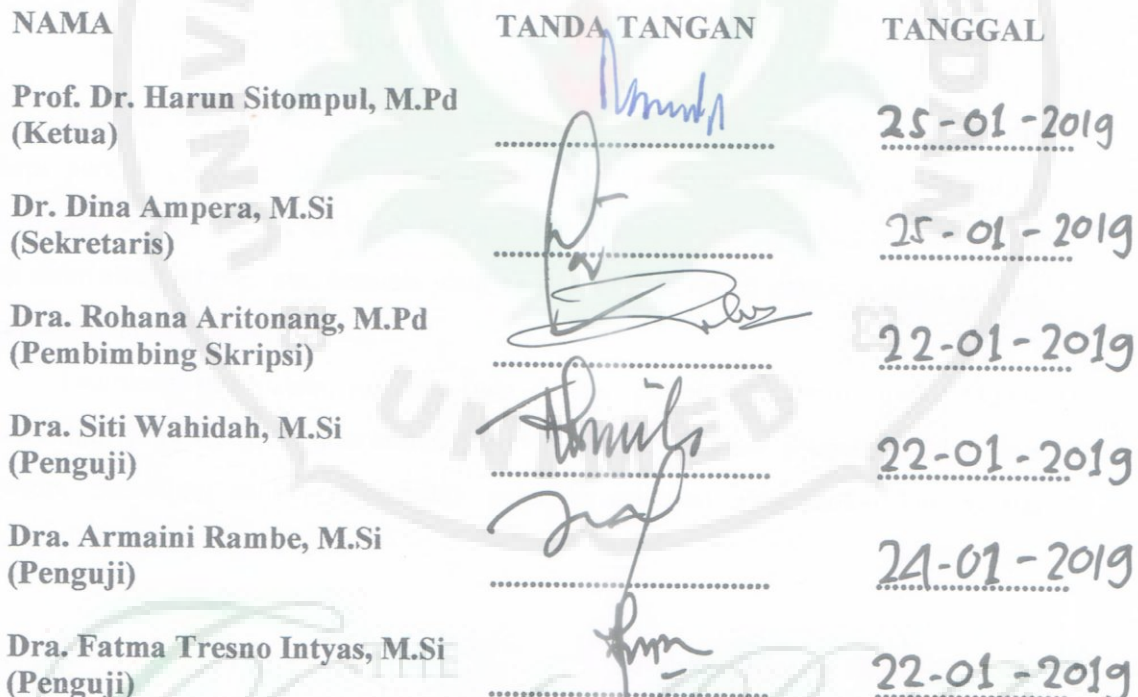 NAMA TANDA TANGAN TANGGAL
Prof. Dr. Harun Sitompul, M.Pd
(Ketua) 25-01-2019
Dr. Dina Ampera, M.Si
(Sekretaris) 25-01-2019
Dra. Rohana Aritonang, M.Pd
(Pembimbing Skripsi) 22-01-2019
Dra. Siti Wahidah, M.Si
(Penguji) 22-01-2019
Dra. Armaini Rambe, M.Si
(Penguji) 24-01-2019
Dra. Fatma Tresno Intyas, M.Si
(Penguji) 22-01-2019
UNIMED